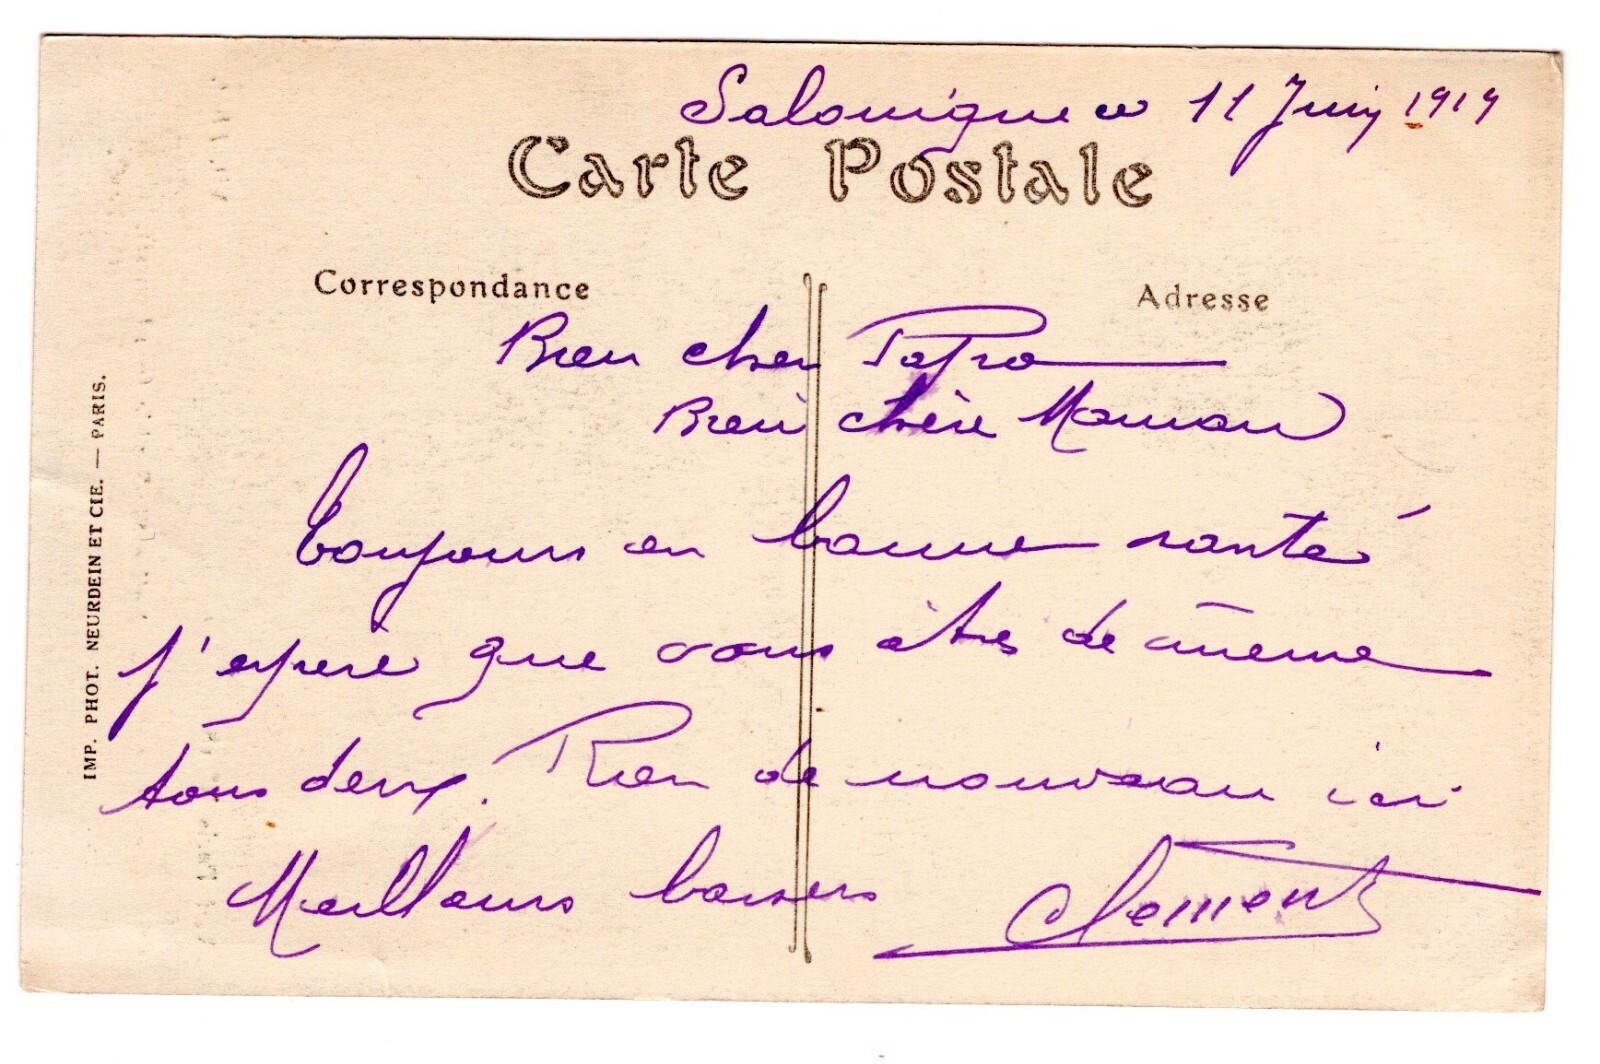 Salonique le 11 Juin 1919
Carte Postale
Correspondance
Adresse
Bien cher Papa
Bien chère Maman
Toujours en bonne santé
j'espere que vous êtes de meme
tous deux. Rien de nouveau ici
Meilleurs baisers Clement
IMP. PHOT. NEURDEIN ET CIE. — PARIS.